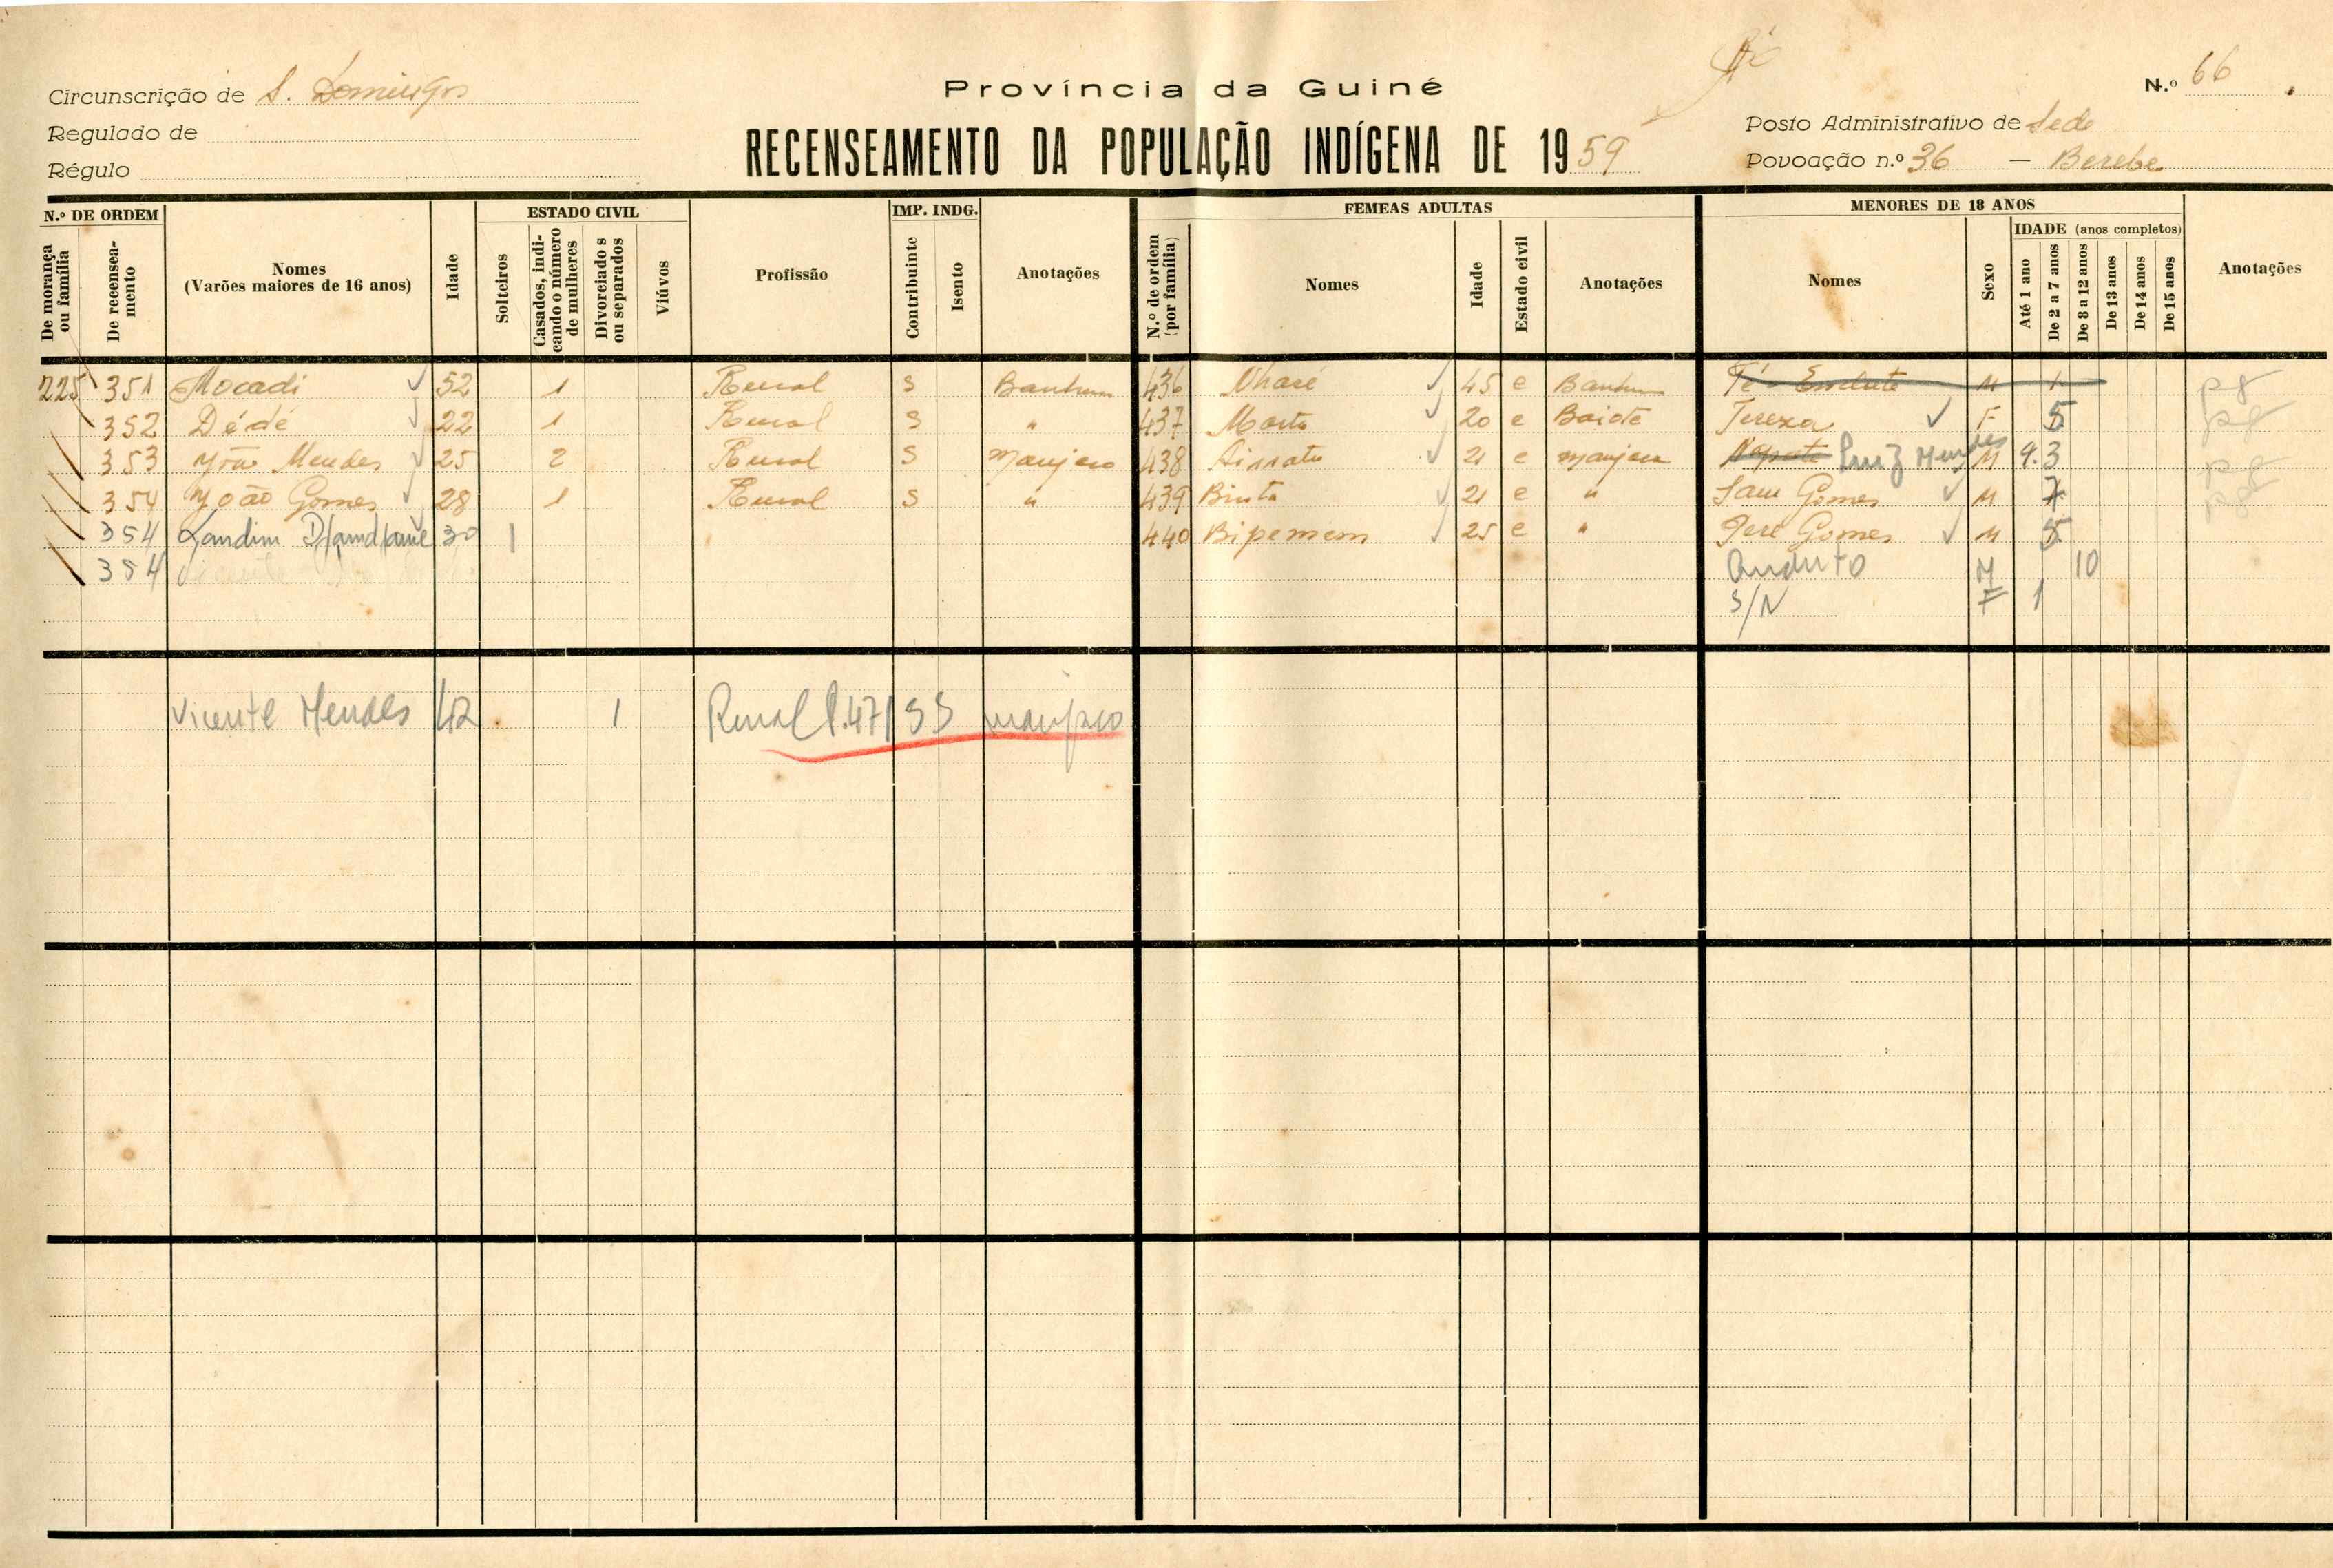 Província da Guiné
N.º 66
Circunscrição de S. Domingos
Regulado de
Régulo
RECENSEAMENTO DA POPULAÇÃO INDÍGENA DE 1959
Posto Administrativo de Sede
Povoação n.º 36 — Berebe
N.º DE ORDEM
De morança ou família
De recenseamento
Nomes
(Varões maiores de 16 anos)
Idade
ESTADO CIVIL
Solteiros
Casados, indicando o número de mulheres
Divorciados ou separados
Viúvos
Profissão
IMP. INDG.
Contribuinte
Isento
Anotações
FEMEAS ADULTAS
N.º de ordem (por família)
Nomes
Idade
Estado civil
Anotações
MENORES DE 18 ANOS
Nomes
Sexo
IDADE (anos completos)
Até 1 ano
De 2 a 7 anos
De 8 a 12 anos
De 13 anos
De 14 anos
De 15 anos
Anotações
225 351 Mocadi 52 1 Rural S Banhum 436 Nhasé 45 c Banhum Té - Endute M 1
352 Dédé 22 1 Rural S " 437 Marta 20 c Baiote Tereza F 5
353 Mendes 25 2 Rural S Manjaco 438 21 c Manjaco Luiz Mendes M 3
354 João Gomes 28 1 Rural S " 439 Binta 21 c " Gomes M 7
354 Landim 30 1 440 Bipemem 25 c " Gomes M 5
354 M 10
S/N F 1
Vicente Mendes 42 1 Rural manjaco